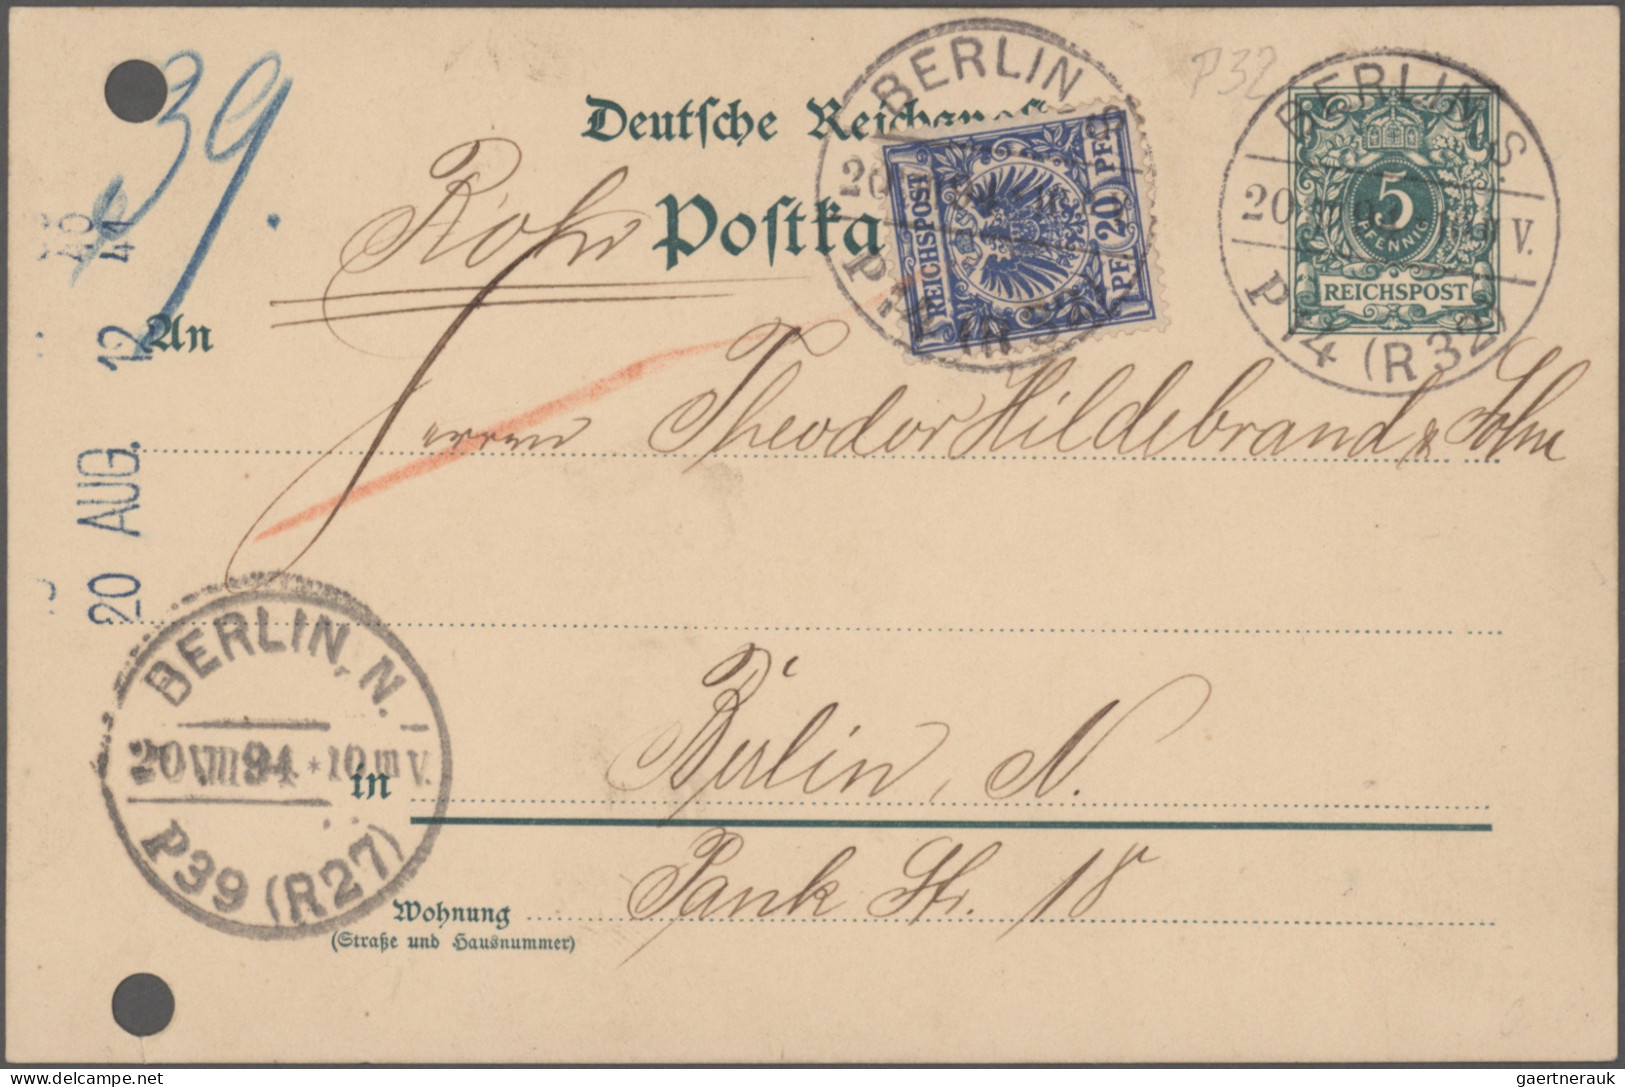 39.
P32
Deutsche Reichspost
Rohr
Postka
An
BERLIN, S.
20
P74 (R32)
REICHSPOST
20 PF
PF 20
BERLIN, S.
20 VIII 94 V.
P74 (R32)
5
PFENNIG
REICHSPOST
20 AUG. 12 44
Herren Theodor Hildebrand & Sohn
BERLIN, N.
20 VIII 94 * 10 m V.
P39 (R27)
in Berlin, N.
Wohnung Pank Str. 18
(Straße und Hausnummer)
gaertnerauk